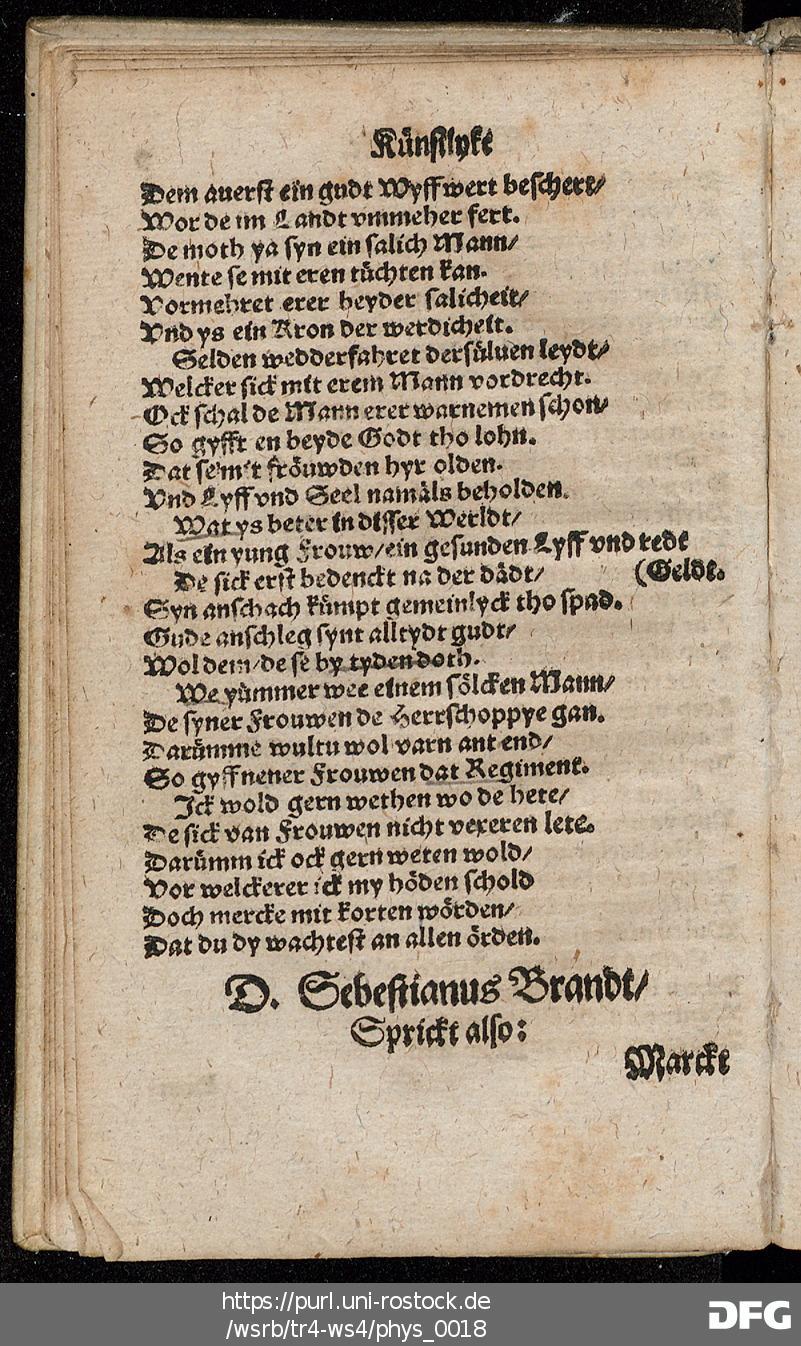 Künstlyke
Dem auerst ein gudt Wyff wert beschert/
Wor de im Landt vmmeher fert.
De moth ya syn ein salich Mann/
Wente se mit eren tüchten kan.
Vormehret erer beyder salicheit/
Vnd ys ein Kron der werdicheit.
Selden wedderfahret dersüluen leydt/
Welcker sick mit erem Mann vordrecht.
Ock schal de Mann erer warnemen schon/
So gyfft en beyde Godt tho lohn.
Dat se mit fröuwden hyr olden.
Vnd Lyff vnd Seel namäls beholden.
Wat ys beter in disser Werldt/
Als ein yung Frouw/ein gesunden Lyff vnd redt
(Geldt.
De sick erst bedenckt na der dädt/
Syn anschach kümpt gemeinlyck tho spad.
Gude anschleg synt alltydt gudt/
Wol dem/de se by tyden doth.
We yümmer wee einem sölcken Mann/
De syner Frouwen de Herrschoppye gan.
Darümme wultu wol varn ant end/
So gyff nener Frouwen dat Regiment.
Ick wold gern wethen wo de hete/
De sick van Frouwen nicht vexeren lete.
Darümm ick ock gern weten wold/
Vor welckerer ick my höden schold
Doch mercke mit korten wörden/
Dat du dy wachtest an allen örden.
D. Sebestianus Brandt/
Sprickt also:
Marcke
https://purl.uni-rostock.de
/wsrb/tr4-ws4/phys_0018
DFG